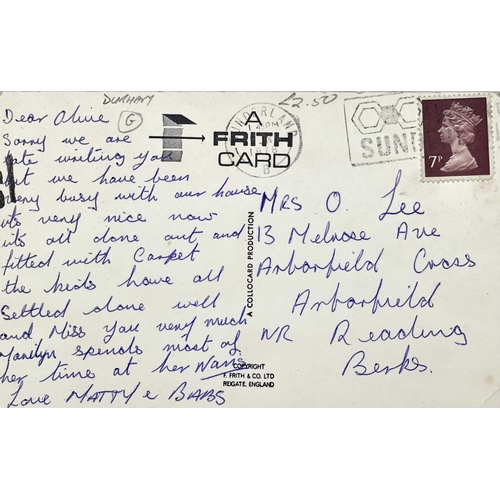 DURHAM
G
£2.50
Dear Olive
Sorry we are
late writing you
but we have been
very busy with our house
its very nice now
its all done out and
fitted with Carpet
the kids have all
Settled done well
and Miss you very much
Marilyn spends most of
her time at her Nans
Love MATTY & BABS
A
FRITH
CARD
A COLLOCARD PRODUCTION
COPYRIGHT
F. FRITH & CO. LTD
REIGATE, ENGLAND
SUNDERLAND
B
SUND
7P
MRS O. Lee
13 Melrose Ave
Arborfield Cross
Arborfield
NR Reading
Berks.